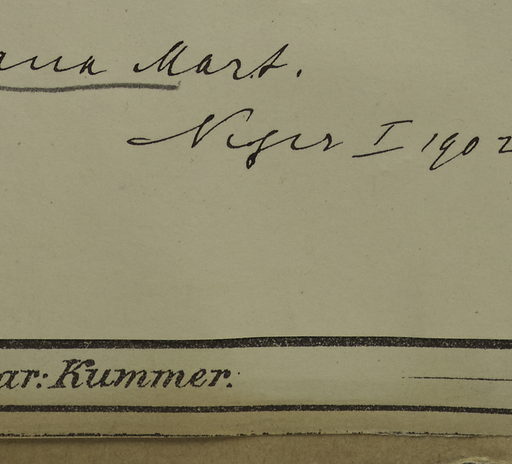 ana Mart.
Niger I 1902
ar: Kummer.